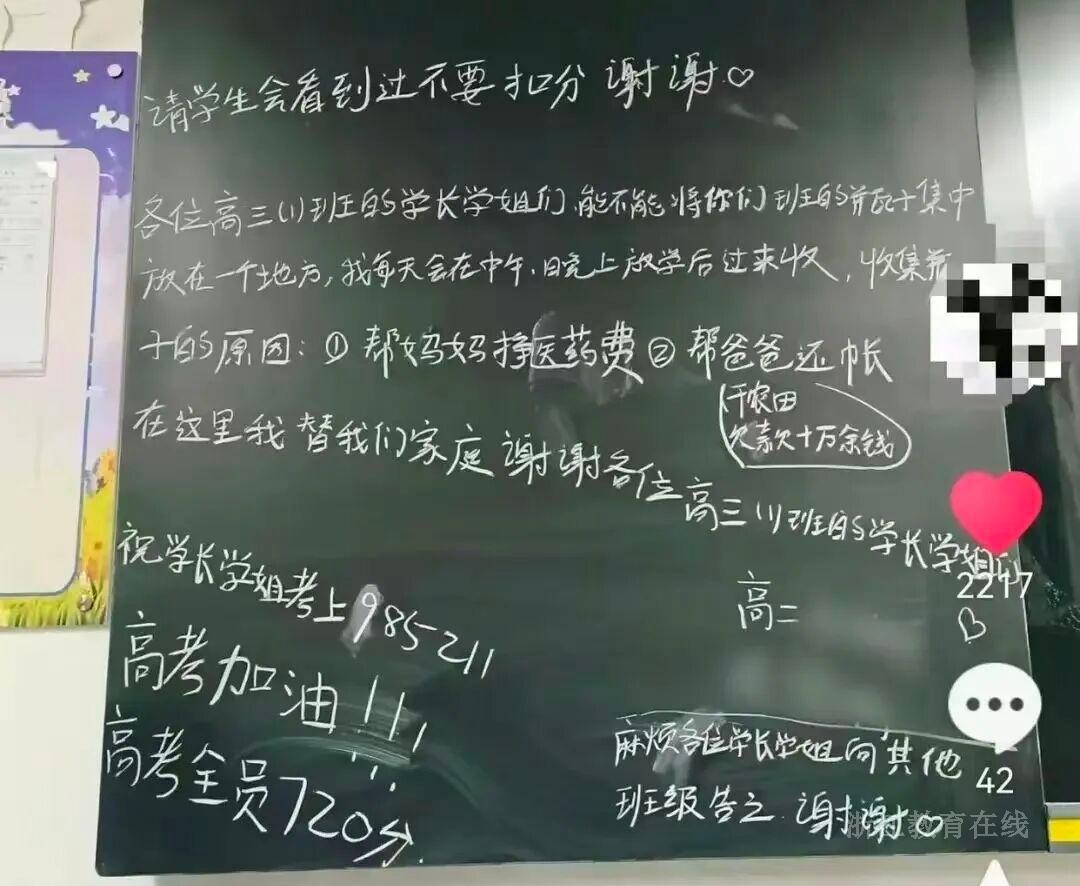 请学生会看到过不要扣分 谢谢♡
各位高三(1)班的学长学姐们,能不能将你们班的瓶子集中
放在一个地方,我每天会在中午、晚上放学后过来收,收集瓶
子的原因:① 帮妈妈挣医药费② 帮爸爸还帐
(干农田
欠款十万余钱)
在这里我替我们家庭谢谢各位高三(1)班的学长学姐们
2217
祝学长学姐考上985 211
高二
♡
高考加油!!!
高考全员720分
麻烦各位学长学姐向其他
42
班级告之 谢谢♡
浙江教育在线